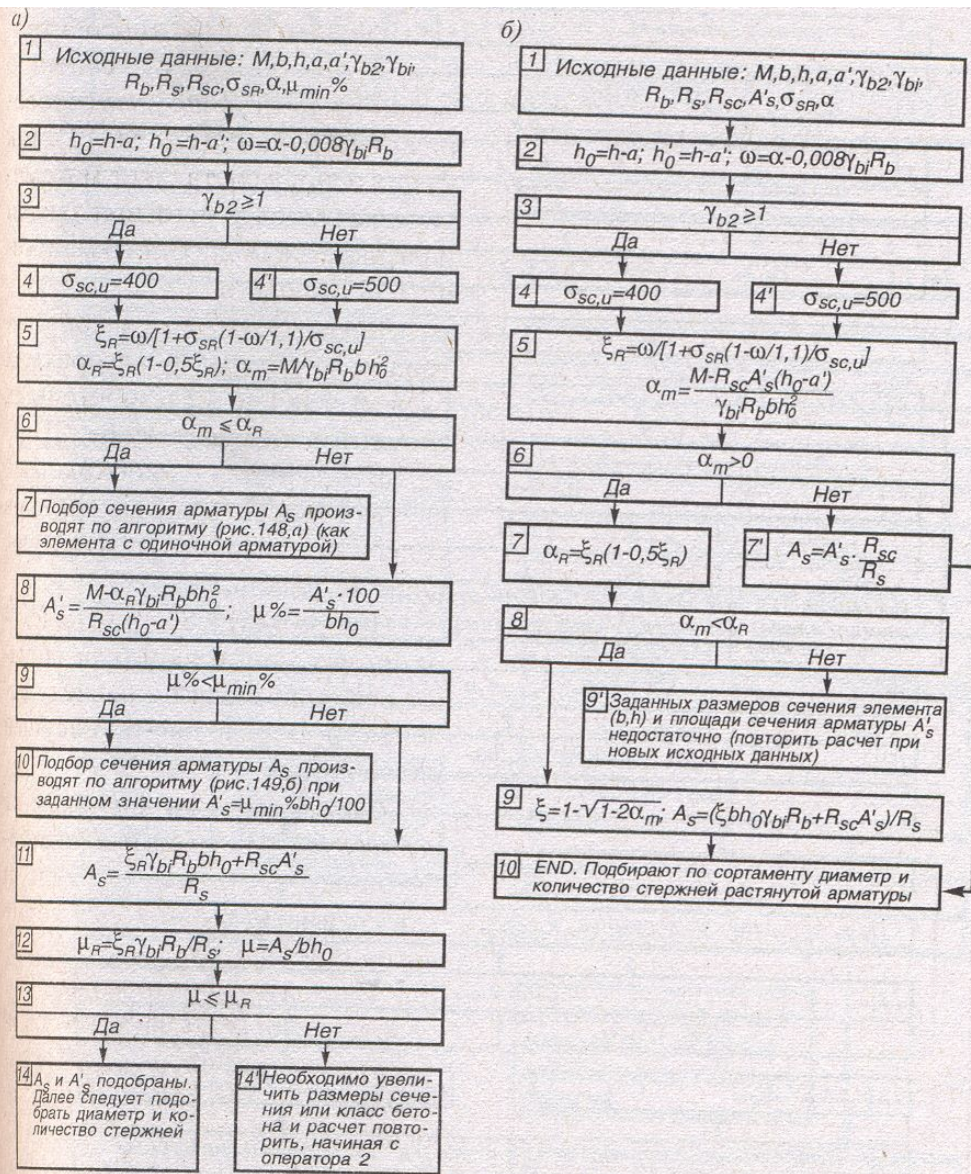 а)
1 Исходные данные: M,b,h,a,a',γb2,γbi,
Rb,Rs,Rsc,σSR,α,μmin%
2 h0=h-a; h'0=h-a'; ω=α-0,008γbiRb
3 γb2⩾1
Да Нет
4 σsc,u=400
4' σsc,u=500
5 ξR=ω/[1+σSR(1-ω/1,1)/σsc,u]
αR=ξR(1-0,5ξR); αm=M/γbiRbbh0²
6 αm⩽αR
Да Нет
7 Подбор сечения арматуры As произ-
водят по алгоритму (рис.148,а) (как
элемента с одиночной арматурой)
8 A's=(M-αRγbiRbbh0²)/(Rsc(h0-a')); μ%=(A's·100)/(bh0)
9 μ%<μmin%
Да Нет
10 Подбор сечения арматуры As произ-
водят по алгоритму (рис.149,б) при
заданном значении A's=μmin%bh0/100
11 As=(ξRγbiRbbh0+RscA's)/Rs
12 μR=ξRγbiRb/Rs; μ=As/bh0
13 μ⩽μR
Да Нет
14 As и A's подобраны.
Далее следует подо-
брать диаметр и ко-
личество стержней
14' Необходимо увели-
чить размеры сече-
ния или класс бето-
на и расчет повто-
рить, начиная с
оператора 2
б)
1 Исходные данные: M,b,h,a,a',γb2,γbi,
Rb,Rs,Rsc,A's,σSR,α
2 h0=h-a; h'0=h-a'; ω=α-0,008γbiRb
3 γb2⩾1
Да Нет
4 σsc,u=400
4' σsc,u=500
5 ξR=ω/[1+σSR(1-ω/1,1)/σsc,u]
αm=(M-RscA's(h0-a'))/(γbiRbbh0²)
6 αm>0
Да Нет
7 αR=ξR(1-0,5ξR)
7' As=A's·Rsc/Rs
8 αm<αR
Да Нет
9' Заданных размеров сечения элемента
(b,h) и площади сечения арматуры A's
недостаточно (повторить расчет при
новых исходных данных)
9 ξ=1-√1-2αm; As=(ξbh0γbiRb+RscA's)/Rs
10 END. Подбирают по сортаменту диаметр и
количество стержней растянутой арматуры